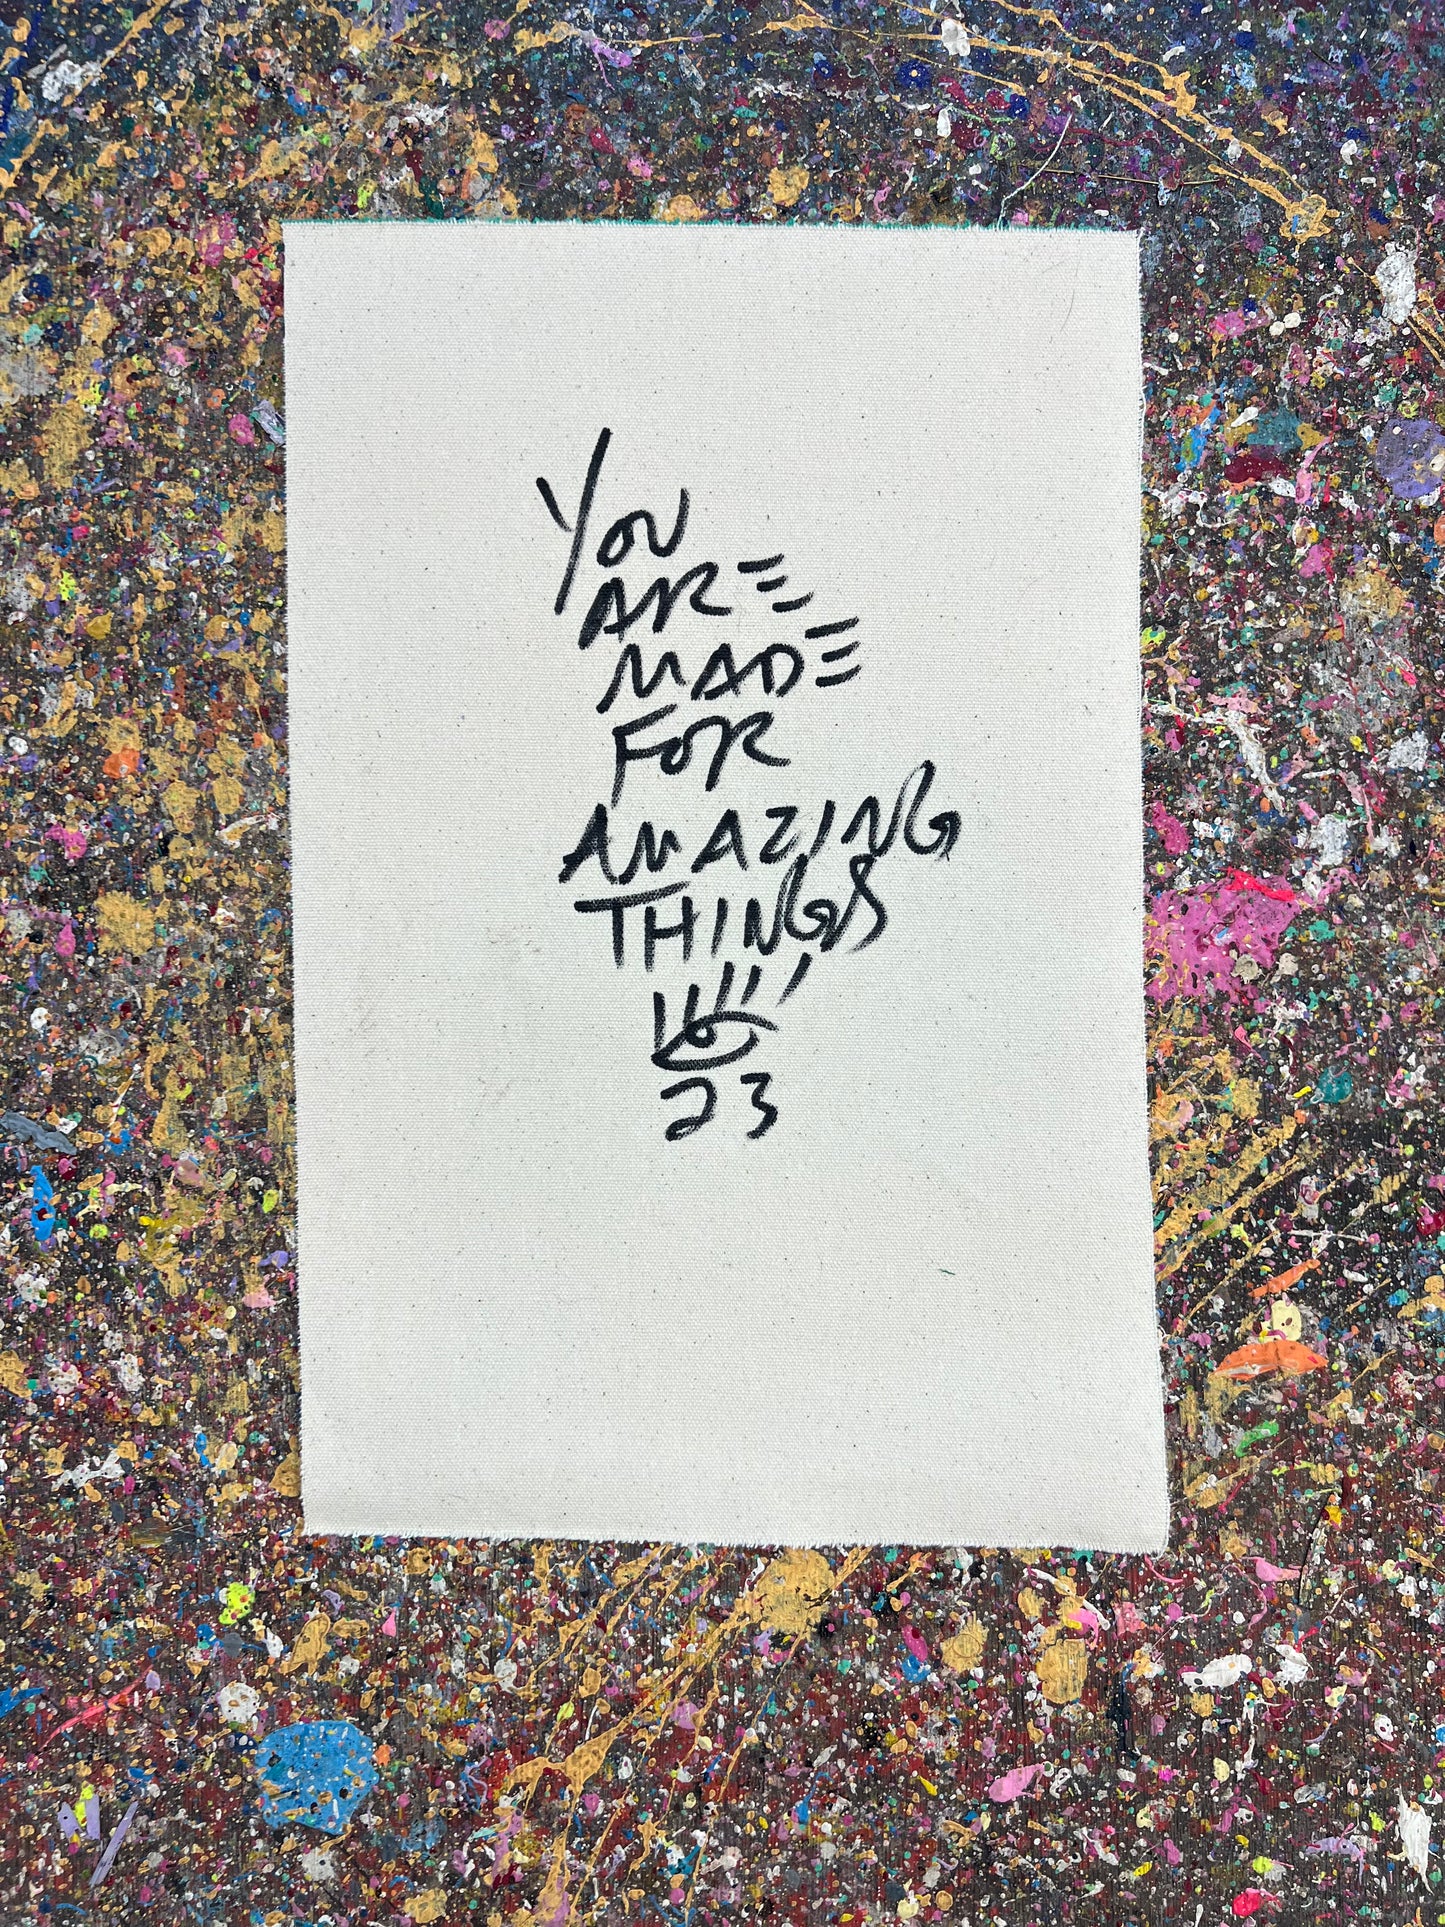 YOU
ARE
MADE
FOR
AMAZING
THINGS
23